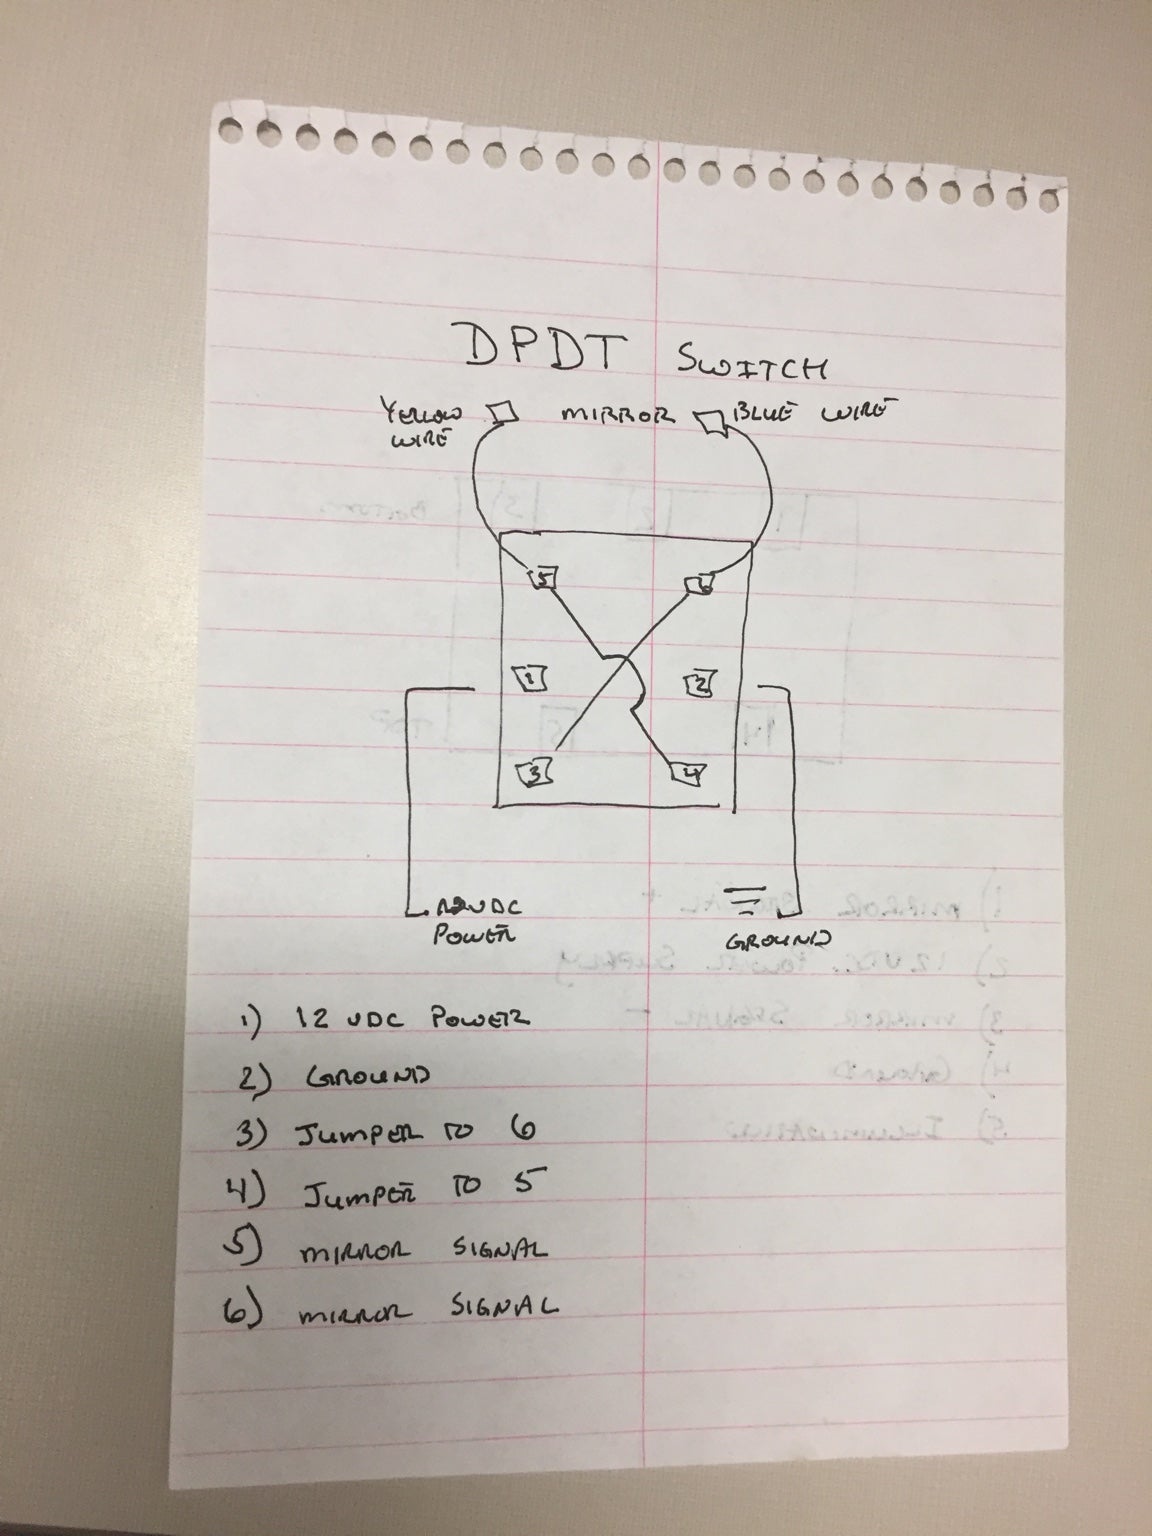 DPDT SWITCH
YELLOW WIRE MIRROR BLUE WIRE
5 6
1 2
3 4
12VDC POWER
GROUND
1) 12 VDC POWER
2) GROUND
3) JUMPER TO 6
4) JUMPER TO 5
5) MIRROR SIGNAL
6) MIRROR SIGNAL